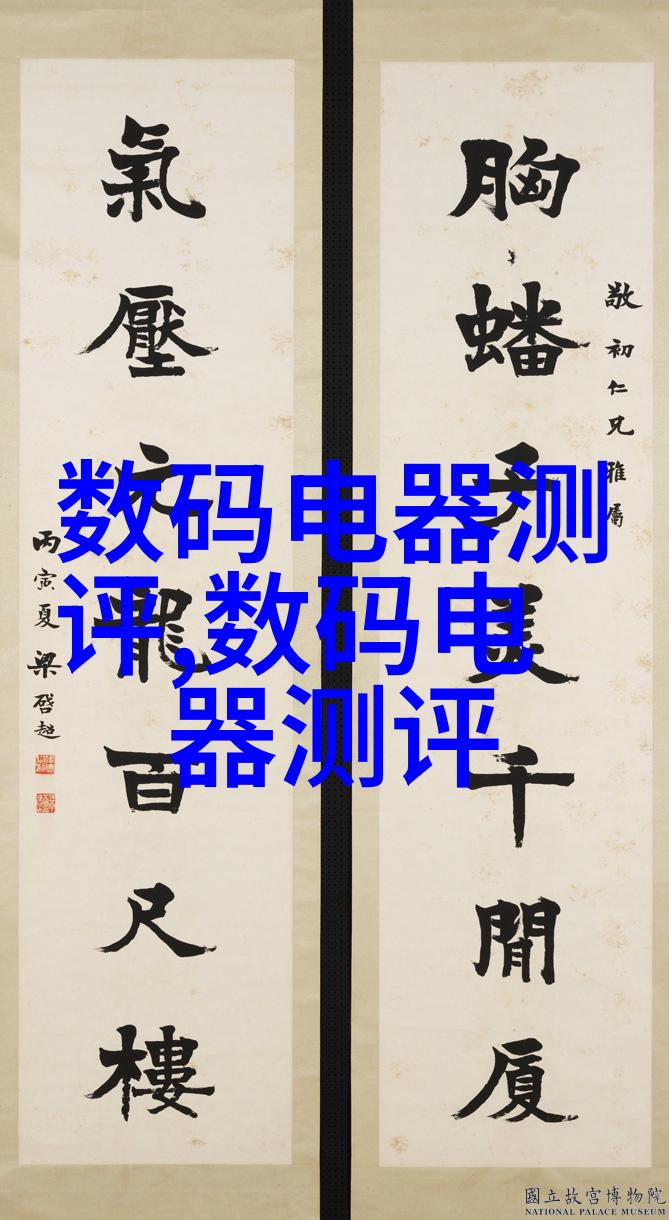 胸蟠子美千間厦
敬初仁兄雅屬
氣壓元龍百尺樓
丙寅夏 梁啓超
数码电器测
评,数码电
器测评
國立故宮博物院
NATIONAL PALACE MUSEUM